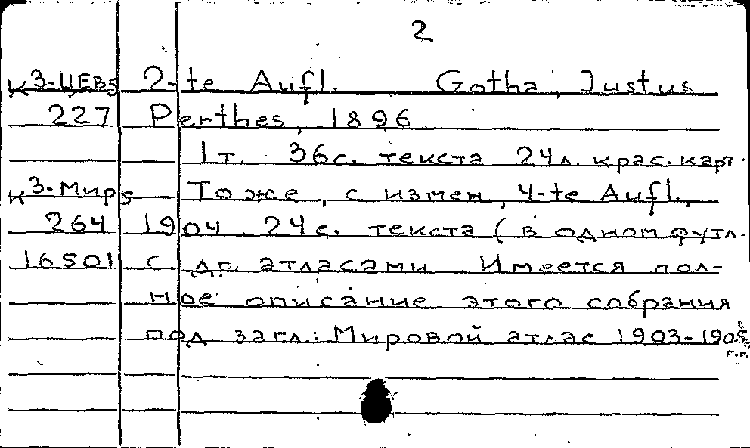 2
к3-ЦЕВ5 2-te Aufl. Gotha, Justus
227 Perthes, 1896
1т. 36с. текста 24л. крас. карт.
к3-Мир5 То же, с измен, 4-te Aufl.,
264 1904 24с. текста (в одном футл.
16501 с др. атласами Имеется пол-
ное описание этого собрания
под загл.: Мировой атлас 1903-1905 г.г.